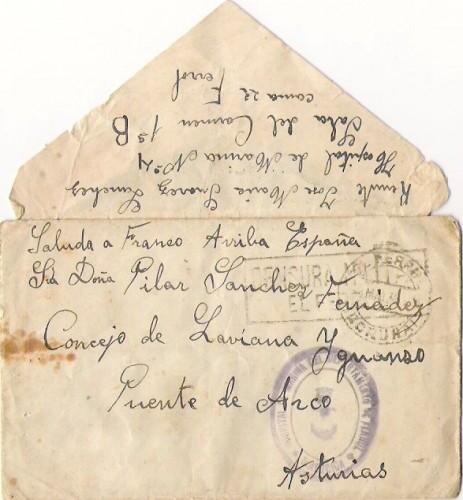 Saluda a Franco Arriba España
Sra Doña Pilar Sanchez Fernádez
Concejo de Laviana Yguanzo
Puente de Arco
Asturias
CENSURA MILITAR
EL FERROL
CORUÑA
Remite Jose Maria Suarez Sanchez
Hospital de Marina Nº 4
Sala del Carmen 1ª B
cama 22 Ferrol